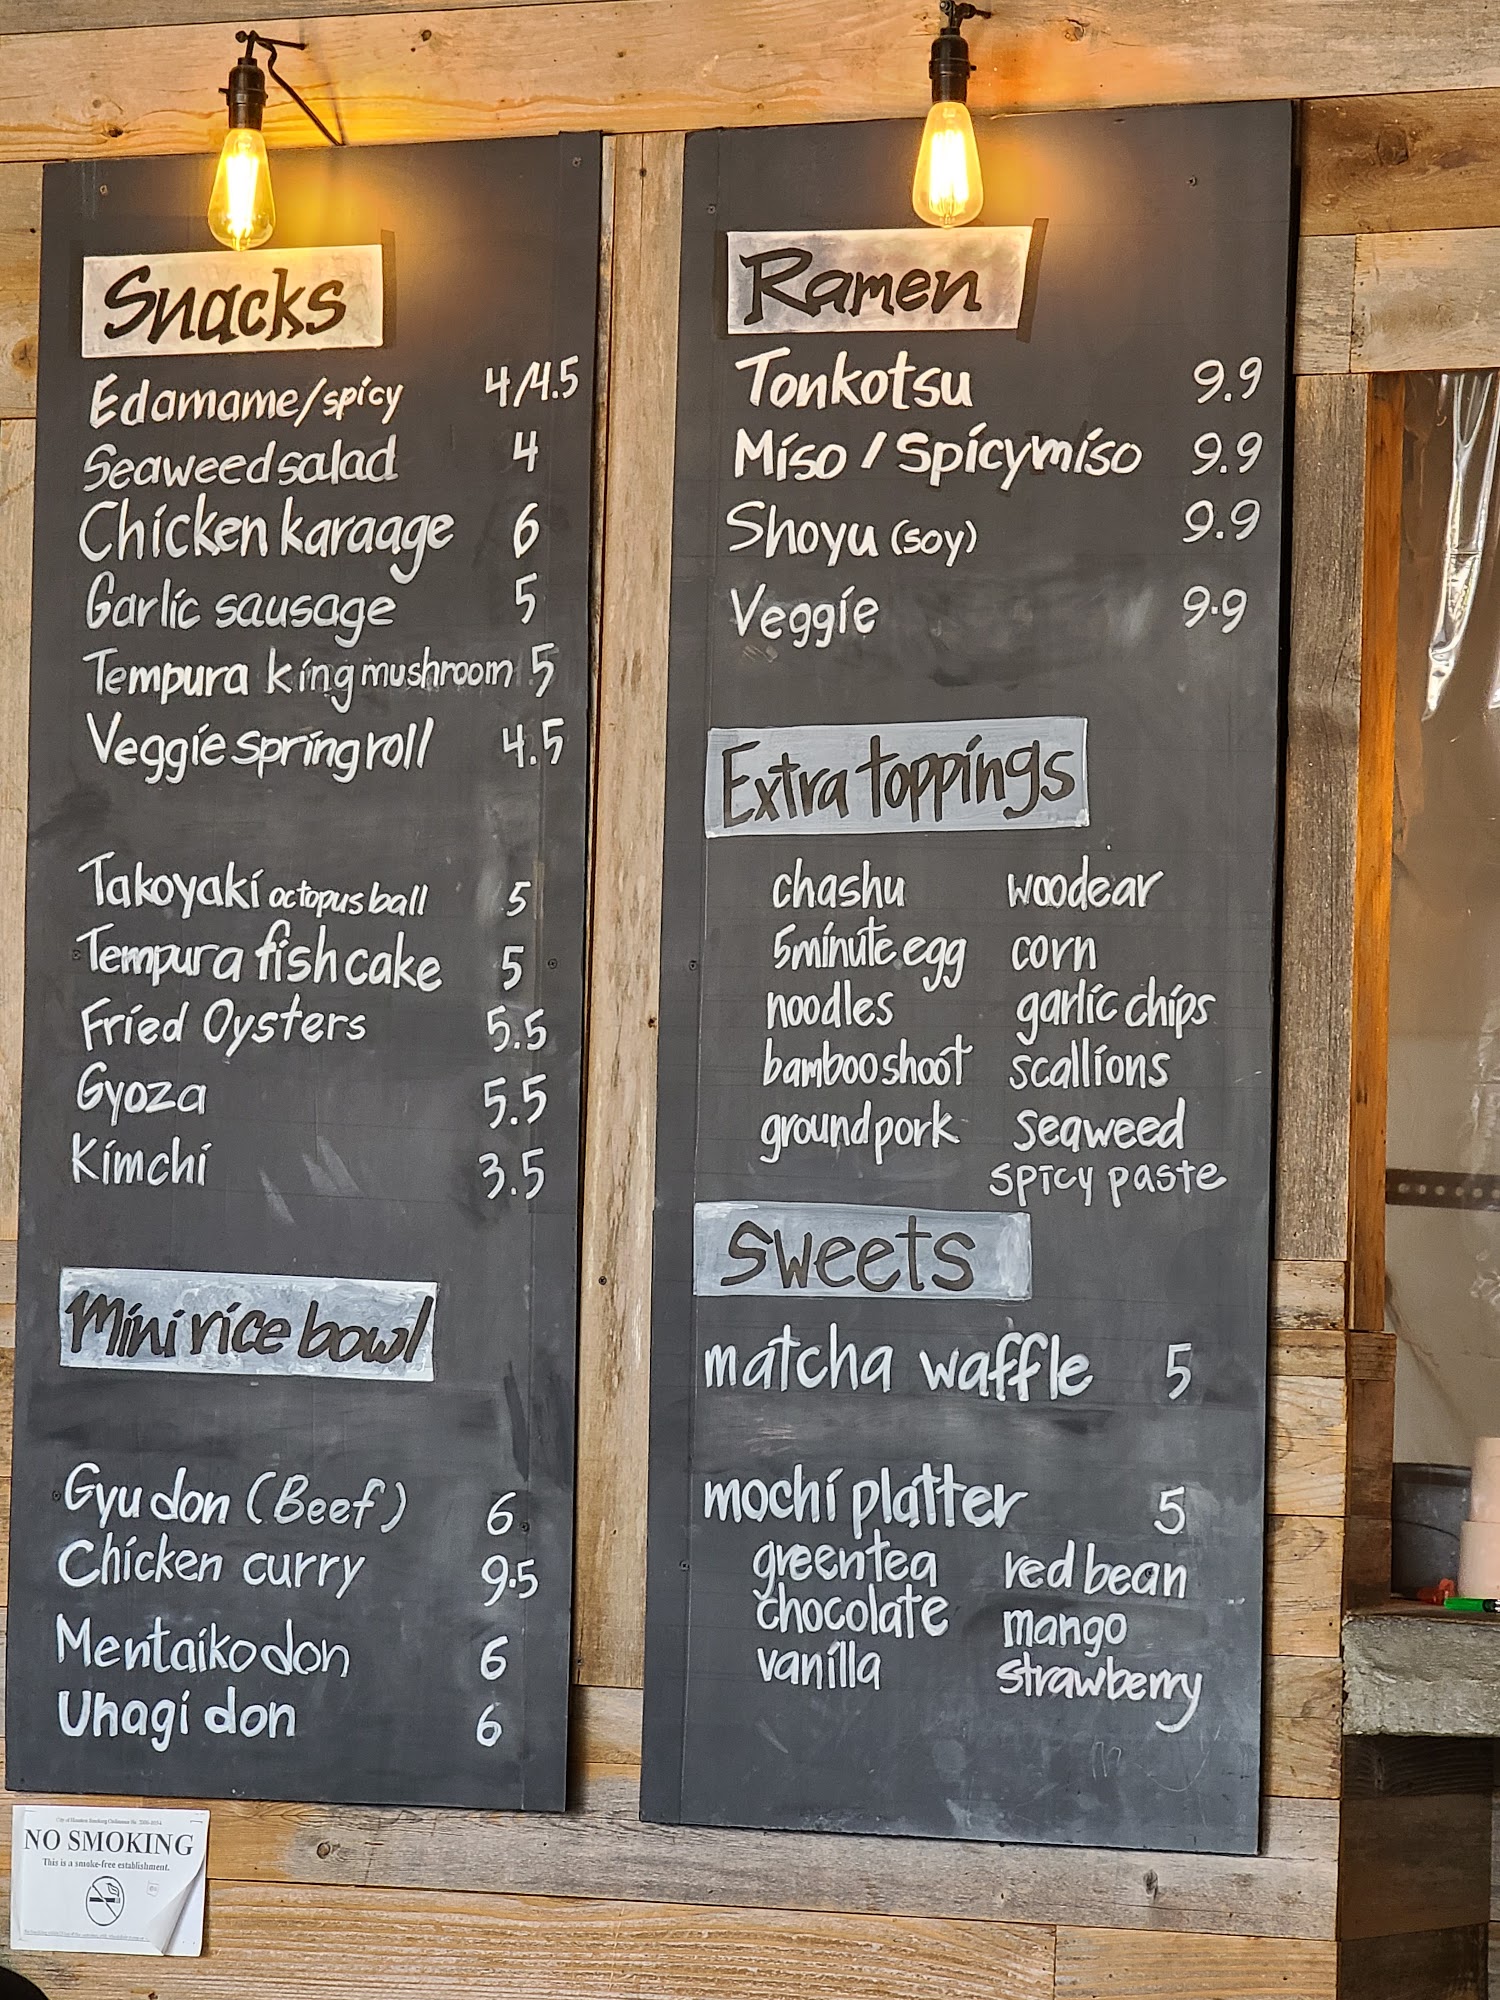 Snacks
Edamame/spicy 4/4.5
Seaweed salad 4
Chicken karaage 6
Garlic sausage 5
Tempura king mushroom 5
Veggie spring roll 4.5
Takoyaki octopus ball 5
Tempura fish cake 5
Fried Oysters 5.5
Gyoza 5.5
Kimchi 3.5
Mini rice bowl
Gyu don (Beef) 6
Chicken curry 9.5
Mentaiko don 6
Unagi don 6
Ramen
Tonkotsu 9.9
Miso / Spicy miso 9.9
Shoyu (soy) 9.9
Veggie 9.9
Extra toppings
chashu woodear
5 minute egg corn
noodles garlic chips
bamboo shoot scallions
ground pork seaweed
spicy paste
Sweets
matcha waffle 5
mochi platter 5
green tea red bean
chocolate mango
vanilla strawberry
NO SMOKING
This is a smoke-free establishment.